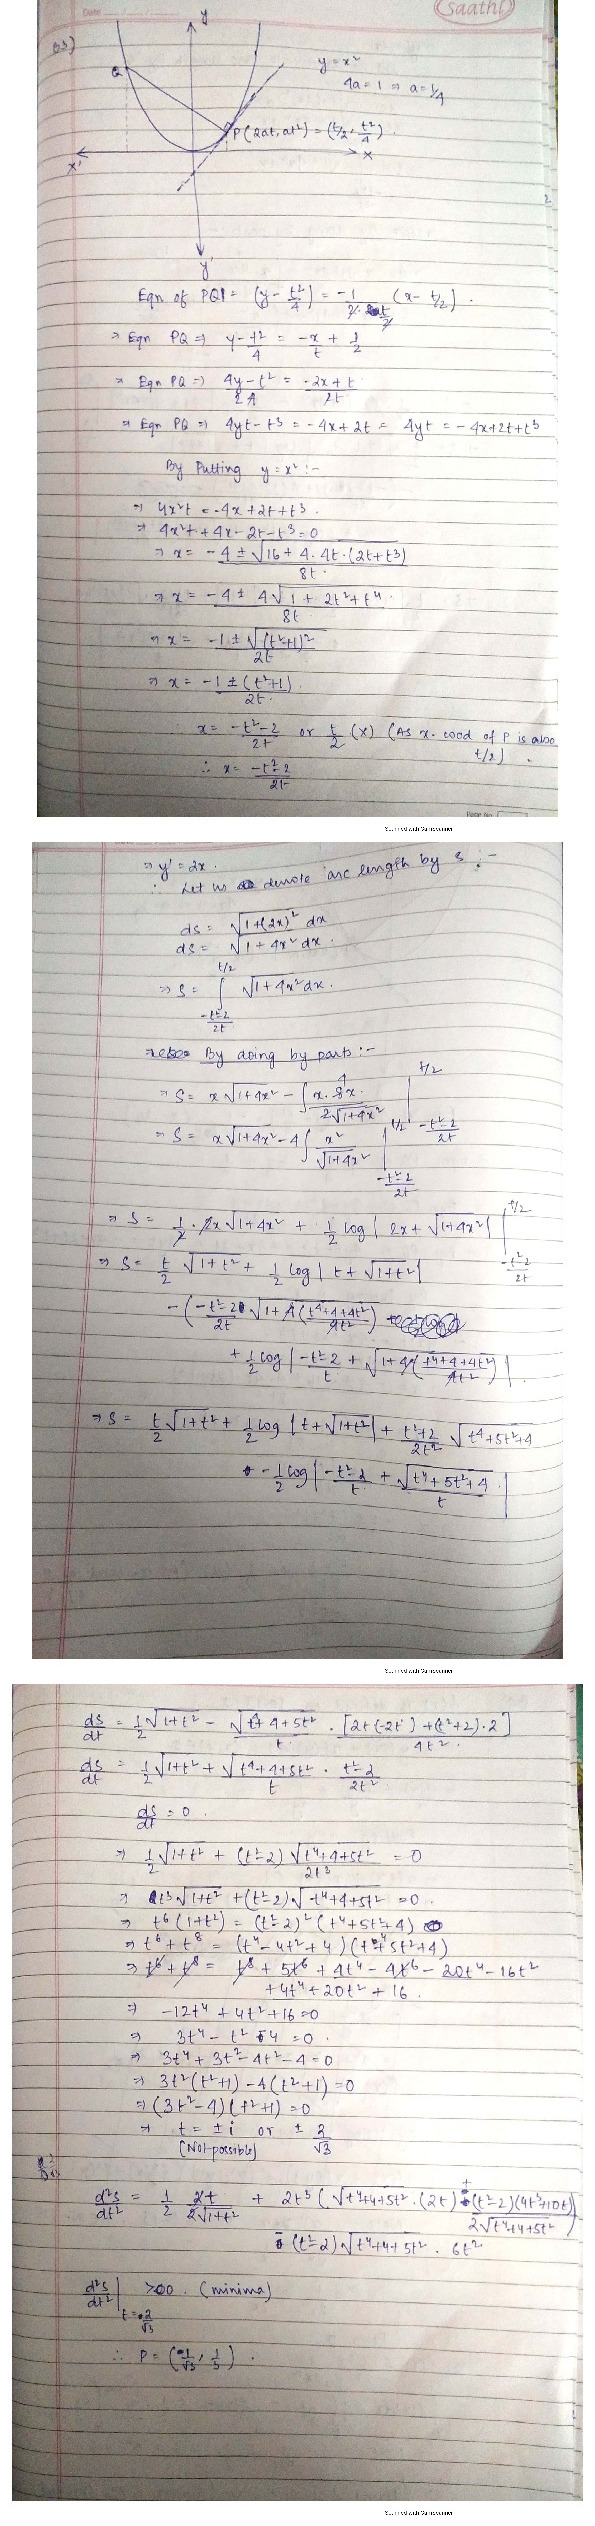 Saathi
Date
Q3)
y
y = x²
4a = 1 ⇒ a = 1/4
Q
P(2at, at²) = (t/2, t²/4).
x'
x
2
y'
Eqn of PQ = (y - t²/4) = -1/(2·t/2) (x - t/2).
⇒ Eqn PQ ⇒ y - t²/4 = -x/t + 1/2
⇒ Eqn PQ ⇒ (4y - t²)/(2 4) = (-2x + t)/2t
⇒ Eqn PQ ⇒ 4yt - t³ = -4x + 2t = 4yt = -4x + 2t + t³
By Putting y = x² :-
⇒ 4x²t = -4x + 2t + t³.
⇒ 4x²t + 4x - 2t - t³ = 0
⇒ x = (-4 ± √(16 + 4·4t·(2t + t³)))/8t.
⇒ x = (-4 ± 4√(1 + 2t² + t⁴))/8t
⇒ x = (-1 ± √(t²+1)²)/2t
⇒ x = (-1 ± (t²+1))/2t.
x = (-t²-2)/2t or t/2 (X) (As x-cood of P is also t/2).
∴ x = (-t²-2)/2t
Page No.
Scanned with CamScanner
⇒ y' = 2x.
∴ Let us denote arc length by s :-
ds = √(1+(2x)²) dx
ds = √(1+4x²) dx.
⇒ S = ∫ from (-t²-2)/2t to t/2 √(1+4x²) dx.
⇒ By doing by parts :-
⇒ S = x√(1+4x²) - ∫ (x·8x)/(2√(1+4x²)) | 4 t/2 (-t²-2)/2t
⇒ S = x√(1+4x²) - 4∫ x²/√(1+4x²) | t/2 (-t²-2)/2t
⇒ S = 1/2 · 2x√(1+4x²) + 1/2 log | 2x + √(1+4x²) | | t/2 (-t²-2)/2t
⇒ S = t/2 √(1+t²) + 1/2 log | t + √(1+t²) |
- ( (-t²-2)/2t √(1 + 4((t⁴+4+4t²)/4t²))
+ 1/2 log | (-t²-2)/t + √(1+4((t⁴+4+4t²)/4t²)) |.
⇒ S = t/2 √(1+t²) + 1/2 log | t + √(1+t²) | + (t²+2)/2t² √(t⁴+5t²+4)
- 1/2 log | (-t²-2)/t + √(t⁴+5t²+4)/t |
Scanned with CamScanner
ds/dt = 1/2 √(1+t²) - √(t⁴+4+5t²)/t · [2t(-2t) + (t²+2)·2]/4t².
ds/dt = 1/2 √(1+t²) + √(t⁴+4+5t²)/t · (t²-2)/2t²
ds/dt = 0.
⇒ 1/2 √(1+t²) + (t²-2)√(t⁴+4+5t²)/2t³ = 0
⇒ t³√(1+t²) + (t²-2)√(t⁴+4+5t²) = 0.
⇒ t⁶(1+t²) = (t²-2)²(t⁴+5t²+4)
⇒ t⁶ + t⁸ = (t⁴-4t²+4)(t⁴+5t²+4)
⇒ t⁶ + t⁸ = t⁸ + 5t⁶ + 4t⁴ - 4t⁶ - 20t⁴ - 16t²
+ 4t⁴ + 20t² + 16.
⇒ -12t⁴ + 4t² + 16 = 0
⇒ 3t⁴ - t² - 4 = 0.
⇒ 3t⁴ + 3t² - 4t² - 4 = 0
⇒ 3t²(t²+1) - 4(t²+1) = 0
⇒ (3t²-4)(t²+1) = 0
⇒ t = ± i or ± 2/√3
(Not possible)
d²s/dt² = 1/2 2t/(2√(1+t²)) + 2t³(√(t⁴+4+5t²)·(2t) + (t²-2)(4t³+10t)/(2√(t⁴+4+5t²)))
- (t²-2)√(t⁴+4+5t²)·6t²
d²s/dt² | t = 2/√3 > 0. (minima)
∴ P = (1/√3, 1/3).
Scanned with CamScanner